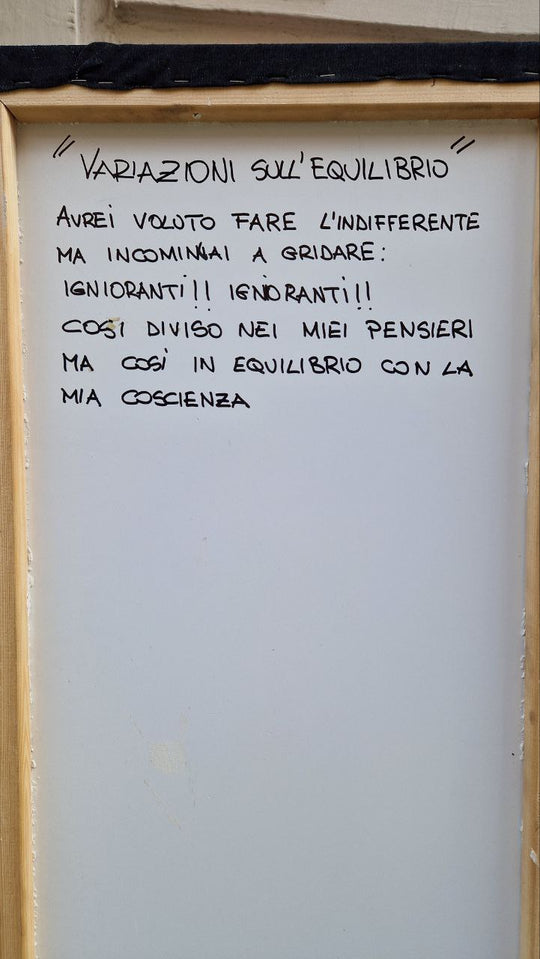 "VARIAZIONI SULL'EQUILIBRIO"
AVREI VOLUTO FARE L'INDIFFERENTE
MA INCOMINCIAI A GRIDARE:
IGNIORANTI!! IGNORANTI!!
COSÌ DIVISO NEI MIEI PENSIERI
MA COSÌ IN EQUILIBRIO CON LA
MIA COSCIENZA